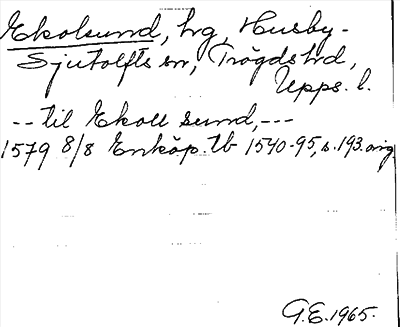 Ekolsund, hg, Husby-
Sjutolfts sn, Trögds hd,
Upps. l.
-- til Ekoll sund, ---
1579 8/8 Enköp. tb 1540-95, s. 193. orig.
G.E. 1965.